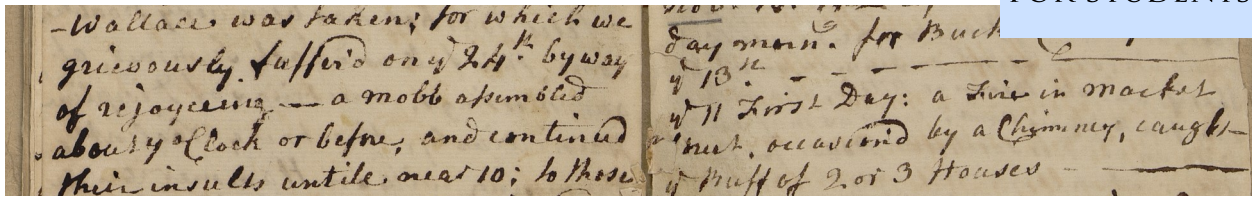 FOR STUDENTS
-Wallace was taken; for which we
grievously suffer'd on yͤ 24ᵗʰ by way
of rejoyceing — a mobb assembled
about 7 oClock or before, and continued
their insults untile near 10; to those
day morn. for Buck
yͤ 13ᵗʰ
yͤ 11 First Day: a Fire in market
occasion'd by a Chimney, caught
yͤ Ruff of 2 or 3 Houses